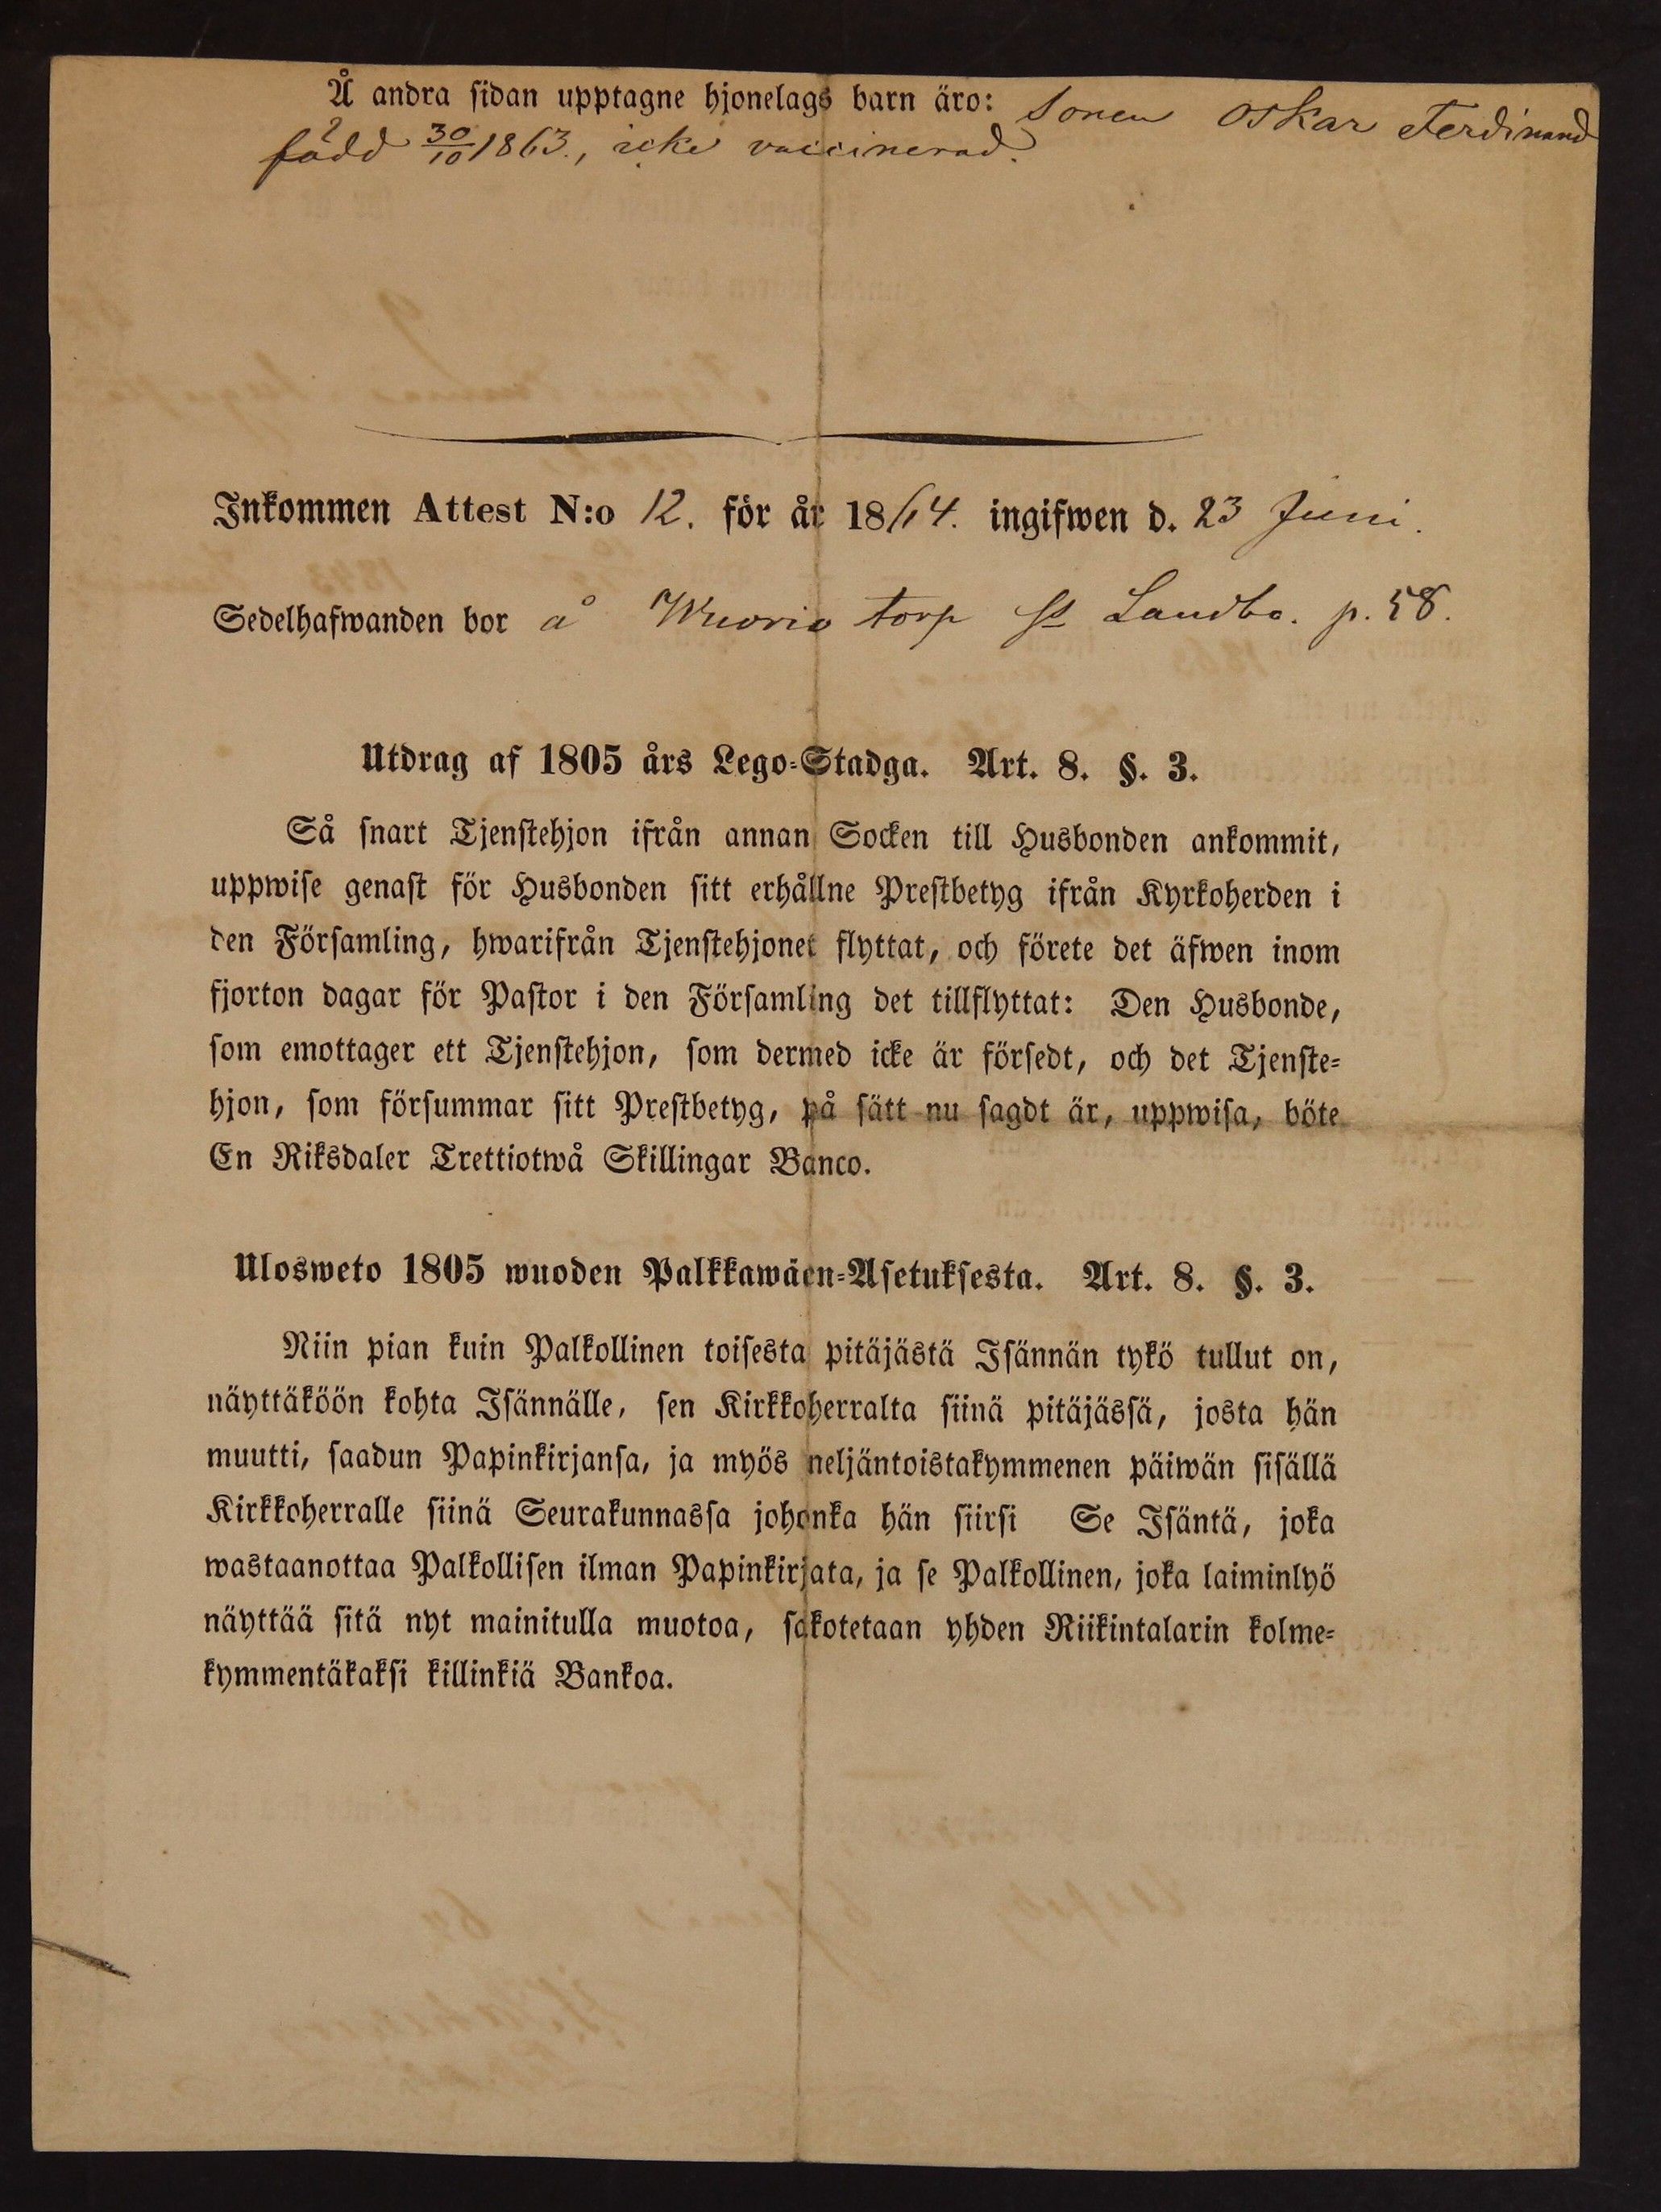 Å andra sidan upptagne hjonelags barn äro: Sonen Oskar Ferdinand
född 30/10 1863., icke vaccinerad.
Inkommen Attest N:o 12. för år 1864. ingifwen d. 23 Juni.
Sedelhafwanden bor å Wuorio torp St Landbo. p. 58.
Utdrag af 1805 års Lego-Stadga. Art. 8. §. 3.
Så snart Tjenstehjon ifrån annan Socken till Husbonden ankommit,
uppwise genast för Husbonden sitt erhållne Prestbetyg ifrån Kyrkoherden i
den Församling, hwarifrån Tjenstehjonet flyttat, och förete det äfwen inom
fjorton dagar för Pastor i den Församling det tillflyttat: Den Husbonde,
som emottager ett Tjenstehjon, som dermed icke är försedt, och det Tjenste-
hjon, som försummar sitt Prestbetyg, på sätt nu sagdt är, uppwisa, böte
En Riksdaler Trettiotwå Skillingar Banco.
Ulosweto 1805 wuoden Palkkawäen-Asetuksesta. Art. 8. §. 3.
Niin pian kuin Palkollinen toisesta pitäjästä Isännän tykö tullut on,
näyttäköön kohta Isännälle, sen Kirkkoherralta siinä pitäjässä, josta hän
muutti, saadun Papinkirjansa, ja myös neljäntoistakymmenen päiwän sisällä
Kirkkoherralle siinä Seurakunnassa johonka hän siirsi Se Isäntä, joka
wastaanottaa Palkollisen ilman Papinkirjata, ja se Palkollinen, joka laiminlyö
näyttää sitä nyt mainitulla muotoa, sakotetaan yhden Riikintalarin kolme-
kymmentäkaksi killinkiä Bankoa.